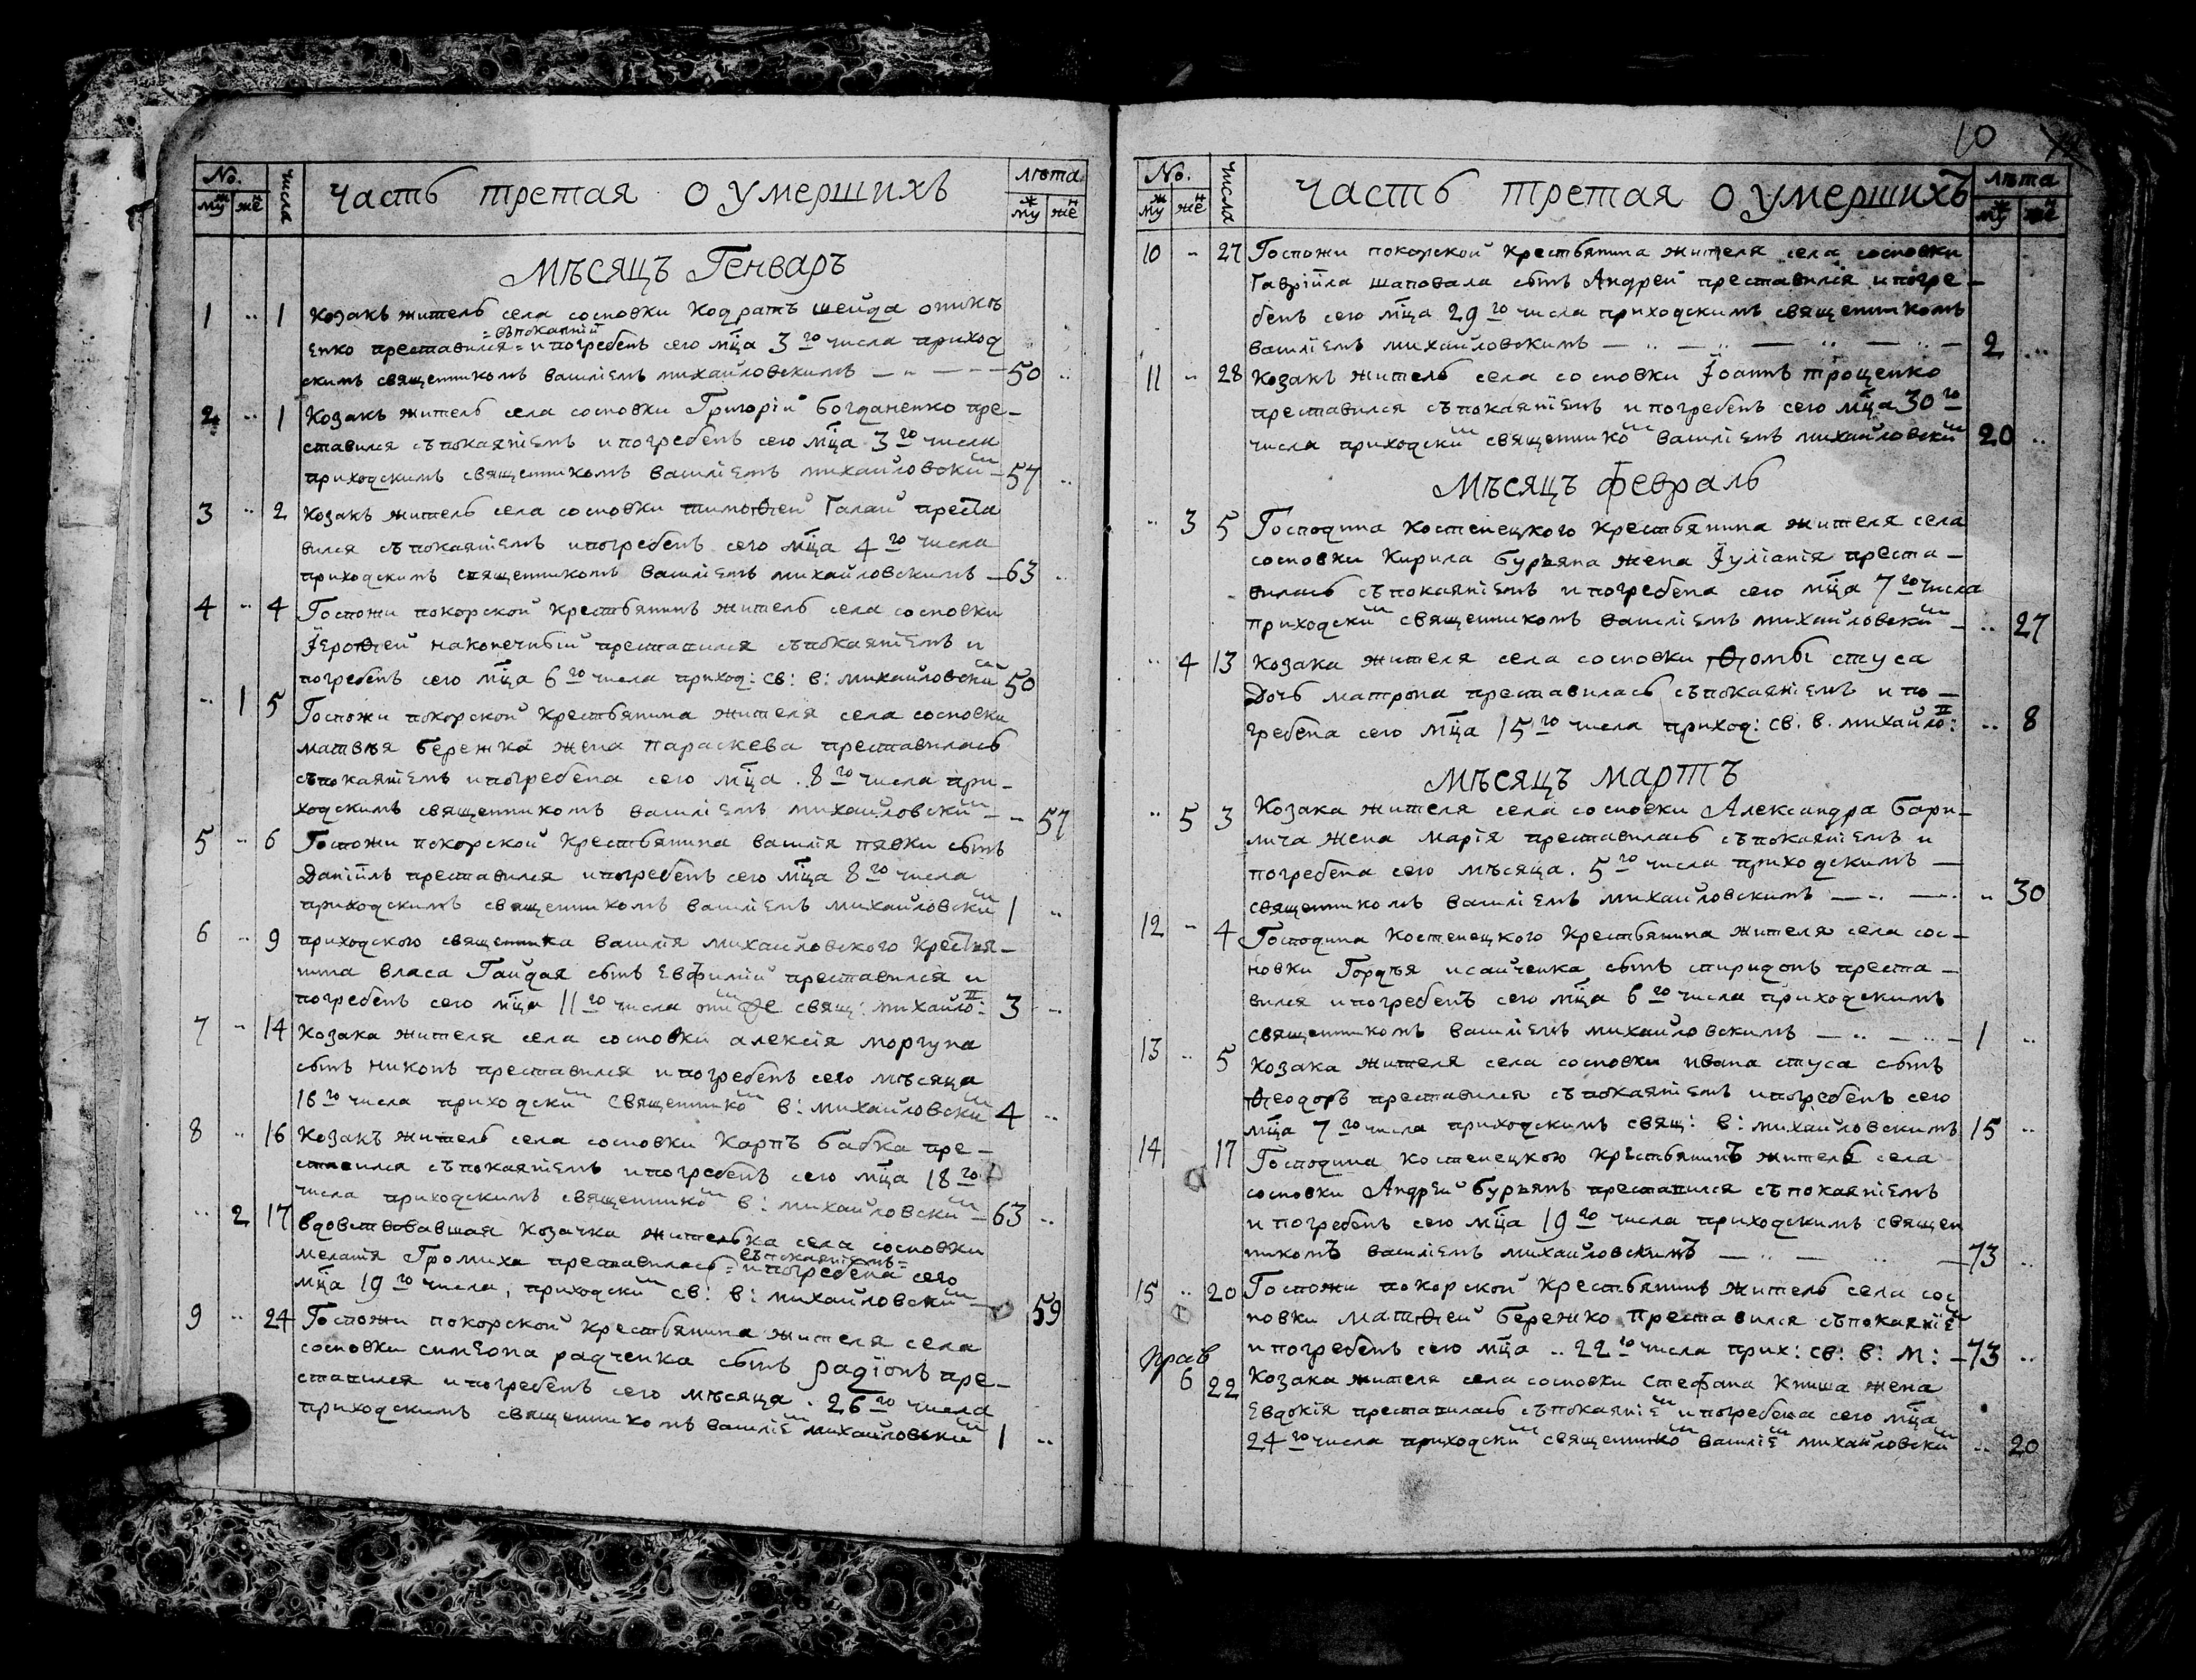 No.
му ж же н
числа
Часть третая о умершихъ
лѣта
му ж же н
Мѣсяцъ Генваръ
1 .. 1 Козакъ житель села сосновки Кодратъ шейда оник
енко преставился = съпокаяній = и погребенъ сего мца 3го числа приход
скимъ священникомъ василіемъ михайловскимъ — 50 ..
2 .. 1 Козакъ житель села сосновки Григорій богданенко пре-
ставился съпокаяніемъ и погребенъ сего мца 3го числа
приходскимъ священникомъ василіемъ михайловским — 57 ..
3 .. 2 Козакъ житель села сосновки тимофей Галай преста
вился съпокаяніемъ и погребенъ сего мца 4го числа
приходскимъ священникомъ василіемъ михайловскимъ — 63 ..
4 .. 4 Госпожи покорской крестьянинъ житель села сосновки
Іерофей наконечный преставился съпокаяніемъ и
погребенъ сего мца 6го числа приход: св: в: михайловским 50
.. 1 5 Госпожи покорской крестьянина жителя села сосновки
матвѣя бережка жена параскева преставилась
съпокаяніемъ и погребена сего мца . 8го числа при-
ходскимъ священникомъ василіемъ михайловским — .. 57
5 .. 6 Госпожи покорской крестьянина василія пявки сынъ
Даніилъ преставился и погребенъ сего мца 8го числа
приходскимъ священникомъ василіемъ михайловским 1 ..
6 .. 9 приходского священника василія михайловского крестья-
нина власа Гайдая сынъ Евфимій преставился и
погребенъ сего мца 11го числа оним де свящ: михайло: 3 ..
7 .. 14 Козака жителя села сосновки алексія моргуна
сынъ никонъ преставился и погребенъ сего мѣсяца
16го числа приходским священником в: михайловским 4 ..
8 .. 16 Козакъ житель села сосновки Карпъ бабка пре-
ставился съпокаяніемъ и погребенъ сего мца 18го
числа приходскимъ священником в: михайловским — 63 ..
.. 2 17 Вдовствовавшая козачка жителька села сосновки
меланія Громиха преставилась = съпокаяніемъ = и погребена сего
мца 19го числа, приходским св: в: михайловским — 59
9 .. 24 Госпожи покорской крестьянина жителя села
сосновки симеона радченка сынъ радіонъ пре-
ставился и погребенъ сего мѣсяца . 26го числа
приходскимъ священникомъ василіем михайловским 1 ..
10
No.
му ж же н
числа
Часть третая о умершихъ
лѣта
му ж же н
10 - 27 Госпожи покорской крестьянина жителя села сосновки
Гавріила шаповала сынъ Андрей преставился и погре-
бенъ сего мца 29го числа приходскимъ священникомъ
василіемъ михайловскимъ — .. — .. — .. — 2 ..
11 - 28 Козакъ житель села сосновки Іоаннъ трощенко
преставился съпокаяніемъ и погребенъ сего мца 30го
числа приходским священником василіемъ михайловским 20 ..
Мѣсяцъ февраль
.. 3 5 Господина Костенецкого крестьянина жителя села
сосновки Кирила буръяна жена Іуліанія преста-
вилась съпокаяніемъ и погребена сего мца 7го числа
приходским священникомъ василіемъ михайловским — .. 27
.. 4 13 Козака жителя села сосновки Фомы стуса
Дочь матрона преставилась съпокаяніемъ и по-
гребена сего мца 15го числа приход: св. в. михайло: .. 8
Мѣсяцъ мартъ
.. 5 3 Козака жителя села сосновки Александра бори-
лича жена марія преставилась съпокаяніемъ и
погребена сего мѣсяца . 5го числа приходскимъ —
священникомъ василіемъ михайловскимъ — .. — .. 30
12 - 4 Господина Костенецкого крестьянина жителя села сос-
новки Гордѣя исайченка сынъ спиридонъ преста-
вился и погребенъ сего мца 6го числа приходскимъ
священникомъ василіемъ михайловскимъ — .. — .. — 1 ..
13 .. 5 Козака жителя села сосновки ивана стуса сынъ
Феодоръ преставился съпокаяніемъ и погребенъ сего
мца 7го числа приходскимъ свящ: в: михайловскимъ 15 ..
14 17 Господина костенецкого крестьянинъ житель села
сосновки Андрей буръянъ преставился съпокаяніемъ
и погребенъ сего мца 19го числа приходскимъ священ
никомъ василіемъ михайловскимъ — .. — .. — 73 ..
15 .. 20 Госпожи покорской крестьянинъ житель села сос
новки матфей бережко преставился съпокаяніем
и погребенъ сего мца .. 22го числа прих: св: в: м: — 73 ..
прав
6 22 Козака жителя села сосновки стефана книша жена
Евдокія преставилась съпокаяніем и погребена сего мца
24го числа приходским священником василіем михайловским .. 20